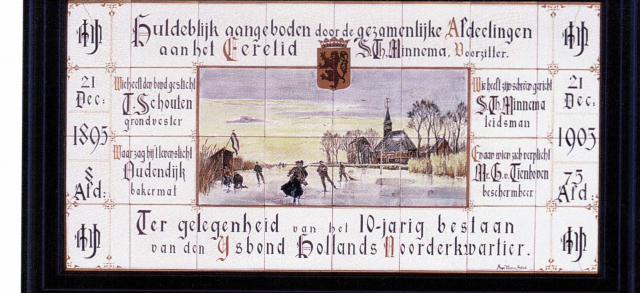 Huldeblijk aangeboden door de gezamenlijke Afdeelingen
aan het Eerelid S.Th. Minnema, Voorzitter.
21
Dec:
1895
8
Afd:
Wie heeft den bond gesticht
T. Schouten
grondvester
Waar zag hij 't levenslicht
Oudendijk
bakermat
Wie heeft zijn schreên gericht
S.Th. Minnema
leidsman
En aan wien zich verplicht
Mr. G. v. Tienhoven
beschermheer
21
Dec:
1905
75
Afd:
Ter gelegenheid van het 10-jarig bestaan
van den IJsbond Hollands Noorderkwartier.